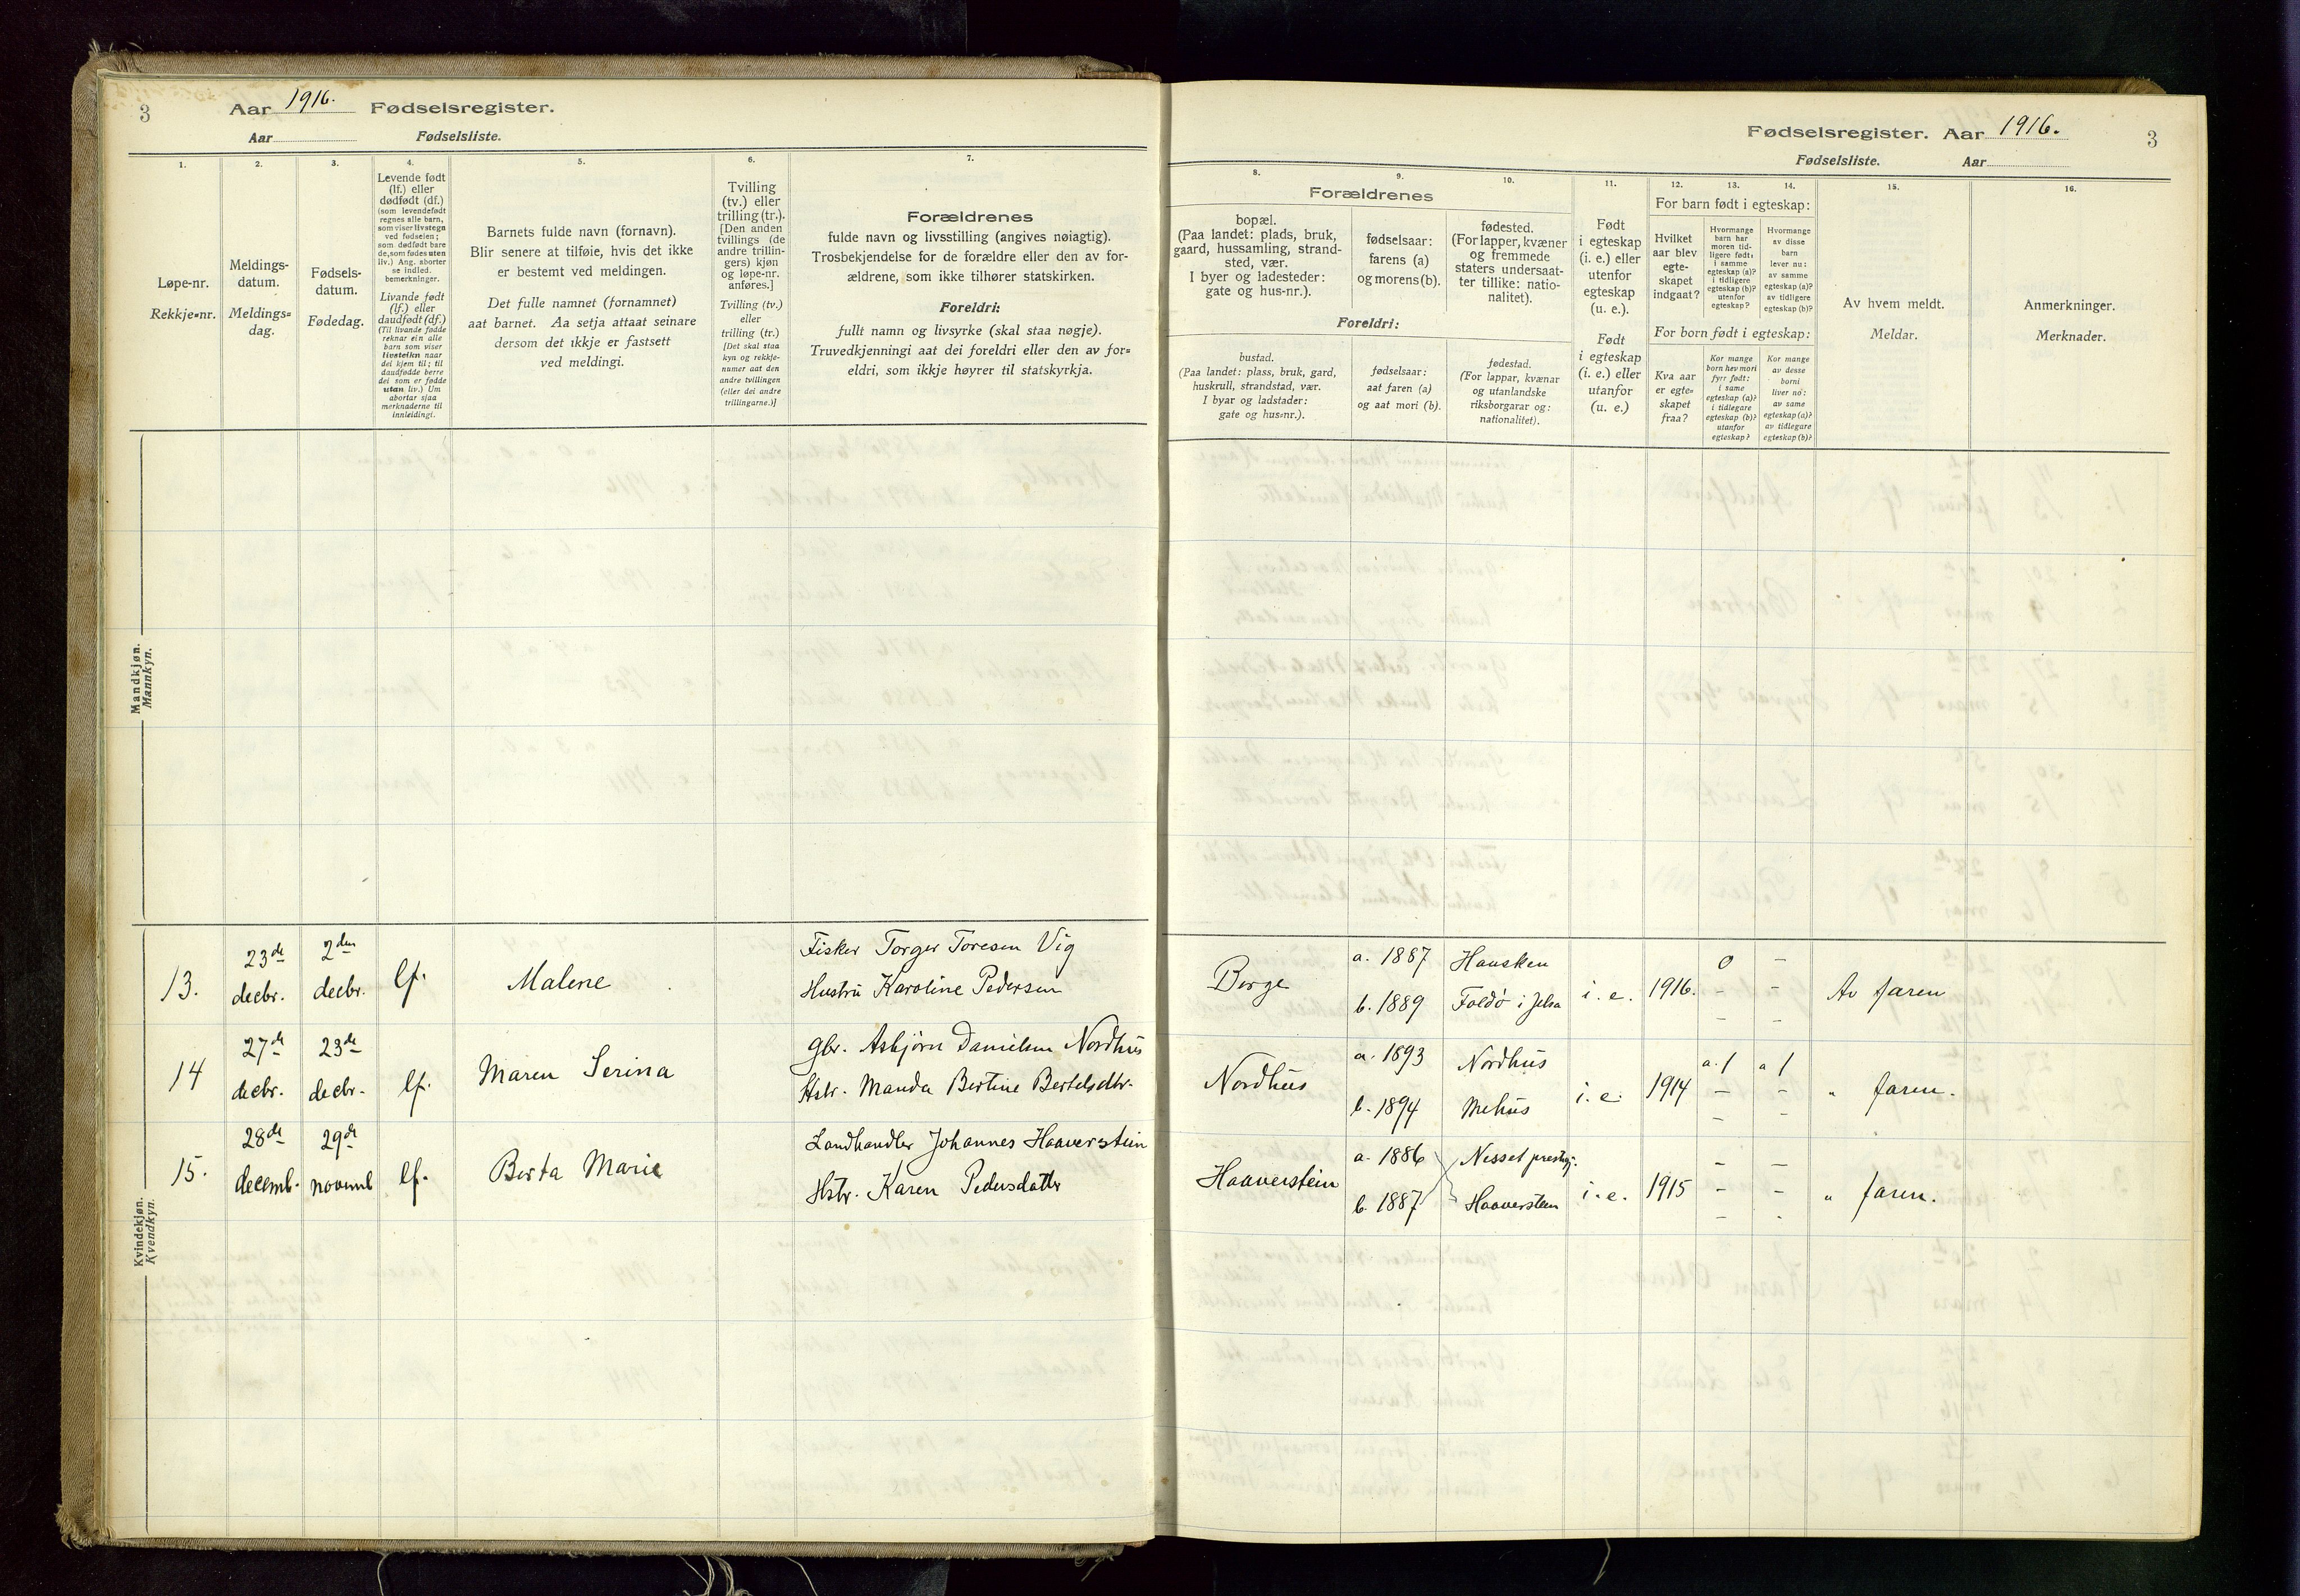 3
Aar 1916. Fødselsregister.
Aar Fødselsliste.
1.
2.
3.
4.
5.
6.
7.
Løpe-nr.
Rekkje-nr.
Meldings-
datum.
Meldings-
dag.
Fødsels-
datum.
Fødedag.
Levende født
(lf.) eller
dødfødt (df.)
(som levendefødt
regnes alle barn,
som viser livstegn
ved fødselen;
som dødfødt bare
de, som fødes uten
liv.) Ang. aborter
se indled.
bemerkninger.
Livande født
(lf.) eller
daudfødt (df.)
(Til livande fødde
reknar ein alle
barn som viser
livsteikn naar
dei kjem til; til
daudfødde berre
dei som er fødde
utan liv.) Um
abortar sjaa
merknaderne til
innleidingi.
Barnets fulde navn (fornavn).
Blir senere at tilføie, hvis det ikke
er bestemt ved meldingen.
Det fulle namnet (fornamnet)
aat barnet. Aa setja attaat seinare
dersom det ikkje er fastsett
ved meldingi.
Tvilling
(tv.) eller
trilling (tr.).
[Den anden
tvillings (de
andre trillin-
gers) kjøn
og løpe-nr.
anføres.]
Tvilling (tv.)
eller
trilling (tr.)
[Det skal staa
kyn og rekkje-
numer aat den
andre tvillingen
(eller dei andre
trillingarne.)]
Forældrenes
fulde navn og livsstilling (angives nøiagtig).
Trosbekjendelse for de forældre eller den av for-
ældrene, som ikke tilhører statskirken.
Foreldri:
fullt namn og livsyrke (skal staa nøgje).
Truvedkjenningi aat dei foreldri eller den av for-
eldri, som ikkje høyrer til statskyrkja.
Mandkjøn.
Mannkyn.
13.
23de
decbr.
2den
decbr.
lf.
Malene
Fisker Torger Toresen Vig
Hustru Karoline Pedersen
14
27de
decbr.
23de
decbr.
lf.
Maren Serina
Gbr. Asbjørn Danielsen Nordhus
Hstr. Manda Bertine Bertelsdtr.
15.
28de
decemb.
29de
novemb
lf.
Berta Marie
Landhandler Johannes Haaverstein
Hstr. Karen Pedersdatter
Kvindekjøn.
Kvendkyn.
Fødselsregister. Aar 1916.
3
Fødselsliste. Aar
8.
9.
10.
11.
12.
13.
14.
15.
16.
Forældrenes
bopæl.
(Paa landet: plads, bruk,
gaard, hussamling, strand-
sted, vær.
I byer og ladesteder:
gate og hus-nr.).
fødselsaar:
farens (a)
og morens (b).
fødested.
(For lapper, kvæner
og fremmede
staters undersaat-
ter tillike: natio-
nalitet).
Foreldri:
bustad.
(Paa landet: plass, bruk, gard,
huskrull, strandstad, vær.
I byar og ladstader:
gate og hus-nr.).
fødselsaar:
aat faren (a)
og aat mori (b).
fødestad.
(For lappar, kvænar
og utanlandske
riksborgarar og:
nationalitet).
Født
i egteskap
(i. e.) eller
utenfor
egteskap
(u. e.).
Født
i egteskap
(i. e.) eller
utanfor
(u. e.)
For barn født i egteskap:
Hvilket
aar blev
egte-
skapet
indgaat?
Hvormange
barn har
moren tid-
ligere født:
i samme
egteskap (a)?
i tidligere
egteskap (b)?
utenfor
egteskap?
Hvormange
av disse
barn
lever nu:
av samme
egteskap (a)?
av tidligere
egteskap (b)?
For born født i egteskap:
Kva aar
er egte-
skapet
fraa?
Kor mange
born hev mori
fyrr født:
i same
egteskap (a)?
i tidlegare
egteskap (b)?
utanfor
egteskap?
Kor mange
av desse
borni
liver no:
av same
egteskap (a)?
av tidlegare
egteskap (b)?
Av hvem meldt.
Meldar.
Anmerkninger.
Merknader.
Borge
a. 1887
b. 1889
Hausken
Foldø i Jelsa
i. e.
1916.
0 -
- -
- -
Av faren
Nordhus
a. 1893
b. 1894
Nordhus
Mehus
i. e.
1914
a. 1 a 1
- -
- -
" faren.
Haaverstein
a. 1886
b. 1887
Nesset prestgj.
Haaverstein
i. e.
1915
- -
- -
- -
" faren.